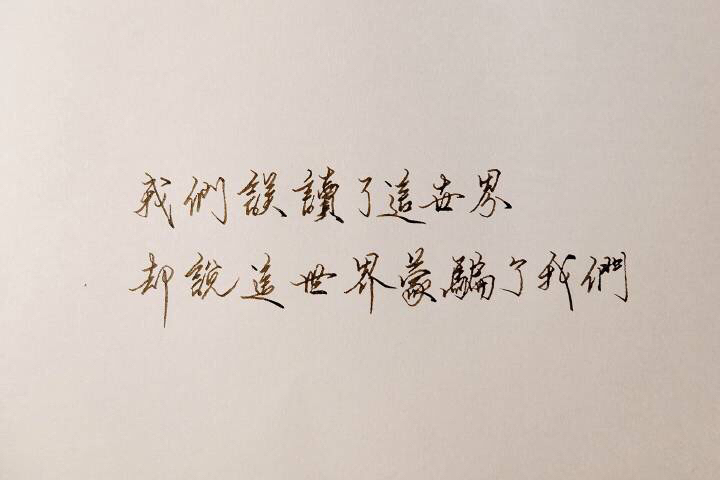 我們誤讀了這世界
却說這世界蒙騙了我們